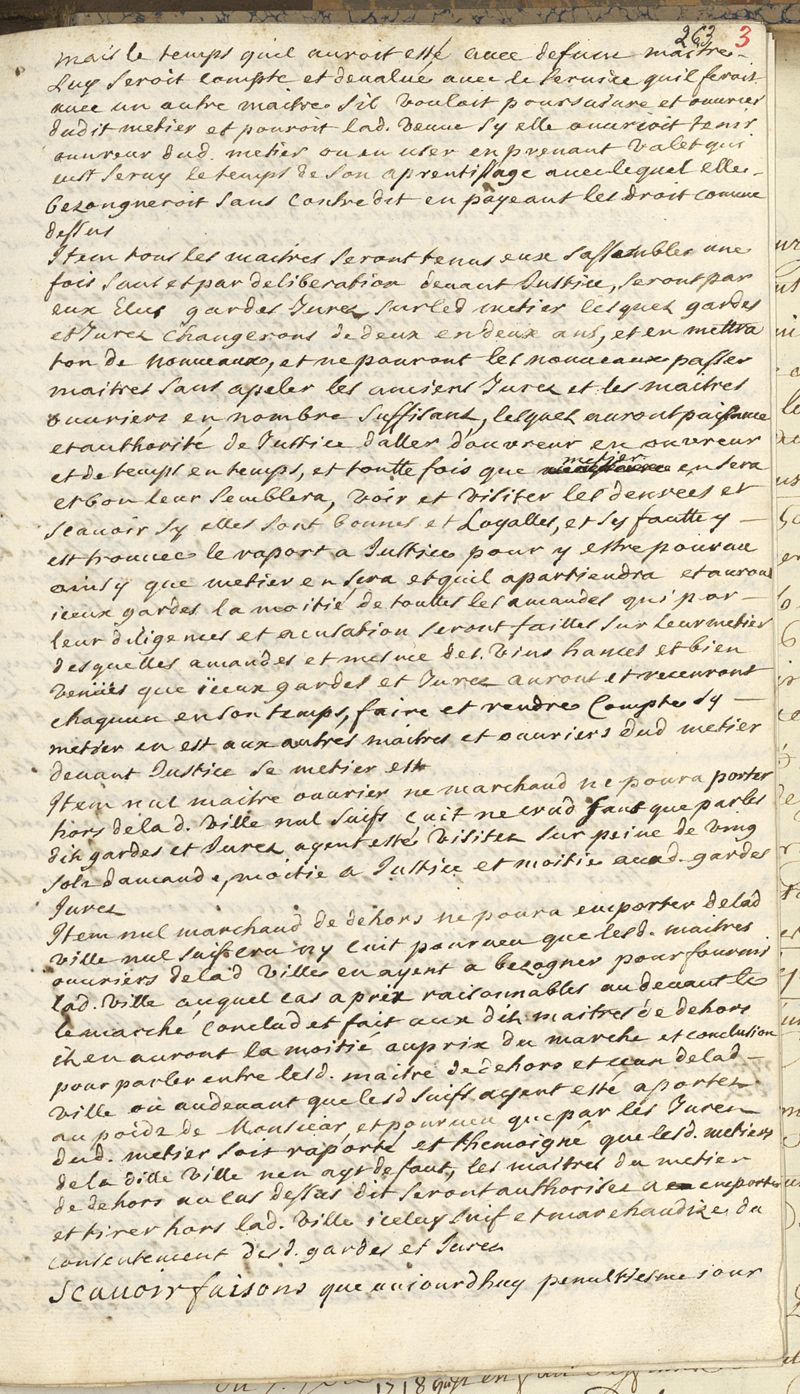 263 3
mais le temps quil auroit esté avec defunt maitre
Luy seroit compté et devalué avec le service quil feroit
avec un autre maitre sil vouloit poursuivre et ouvrier
dudit metier et pouroit lad. veuve sy elle ouvrioit tenir
ouvreur dud. metier ou en user en prenant valet qui
eust servy le temps de son aprentissage avec lequel elle
bezongneroit sans contredit en payeant les droit comme
dessus
Item tous les maitres seront tenus eux sassembler une
fois lan et par deliberation devant Justice, seront par
eux Elus gardes Jurez sur led metier lesquels gardes
et Jurez changerons de deux en deux ans, et en mettra
ton de nouveaux, et ne pouront les nouveaux passer
maitres sans apeler les anciens Jurez et les maitres
ouvriers en nombre suffisant, lesquels auront puissance
et authorité de Justice daller douvreur en ouvreur
et de temps en temps, et toutte fois que metier en sera
et bon leur semblera, voir et visiter les denrées et
scavoir sy elles sont bonnes et Loyalles, et sy fautte y
est trouvée le raport a Justice pour y estre pourveu
ainsy que metier en sera et quil apartiendra et auront
iceux gardes la moitié de touttes les amandes qui par
leur diligences et acusation seront failles sur leur metier
desquelles amandes et mesme des vins hances et bien
venües que iceux gardes et Jurez auront et recevront
chaquun en son temps, faire et rendre Compte sy
metier en est aux autres maitres et ouvriers dud metier
devant Justice se metier est
Item nul maitre ouvrier ne marchand ne poura porter
hors de lad. ville nul suifs cuit ne crud sans que par les
dits gardes et Jurez ayent esté visitez sur peine de ving
solz damande, moitie a Justice et moitie auxd. gardes
Jurez
Item nul marchand de dehors ne poura emporter de lad
ville nul suif cru ny cuit pourveu que lesd. maitres
ouvriers de lad ville en ayent a bezogner pour fournir
lad. ville auquel cas a prix raisonnables au devant le
le marché Conclud et fait aux dits maitres de dehors
ils en auront la moitié au prix du marche et conclusion
pour parler entre lesd. maitre de dehors et ceux de lad
ville ou au devant que lesd suifs ayent esté aportez
au poidz de Monsieur, et pourveu que par les Jurez
dud. metier soit raporté et themoigné que lesd. metiers
de la ditte ville nen ayt defaut, les maitres du metier
de dehors au cas dessus dit seront authorisez a emporter
et tirer hors lad. ville iceluy suif et marchandize du
consentement desd. gardes et Jurez
Scavoir faisons que aujourdhuy penultiesme jour
1718